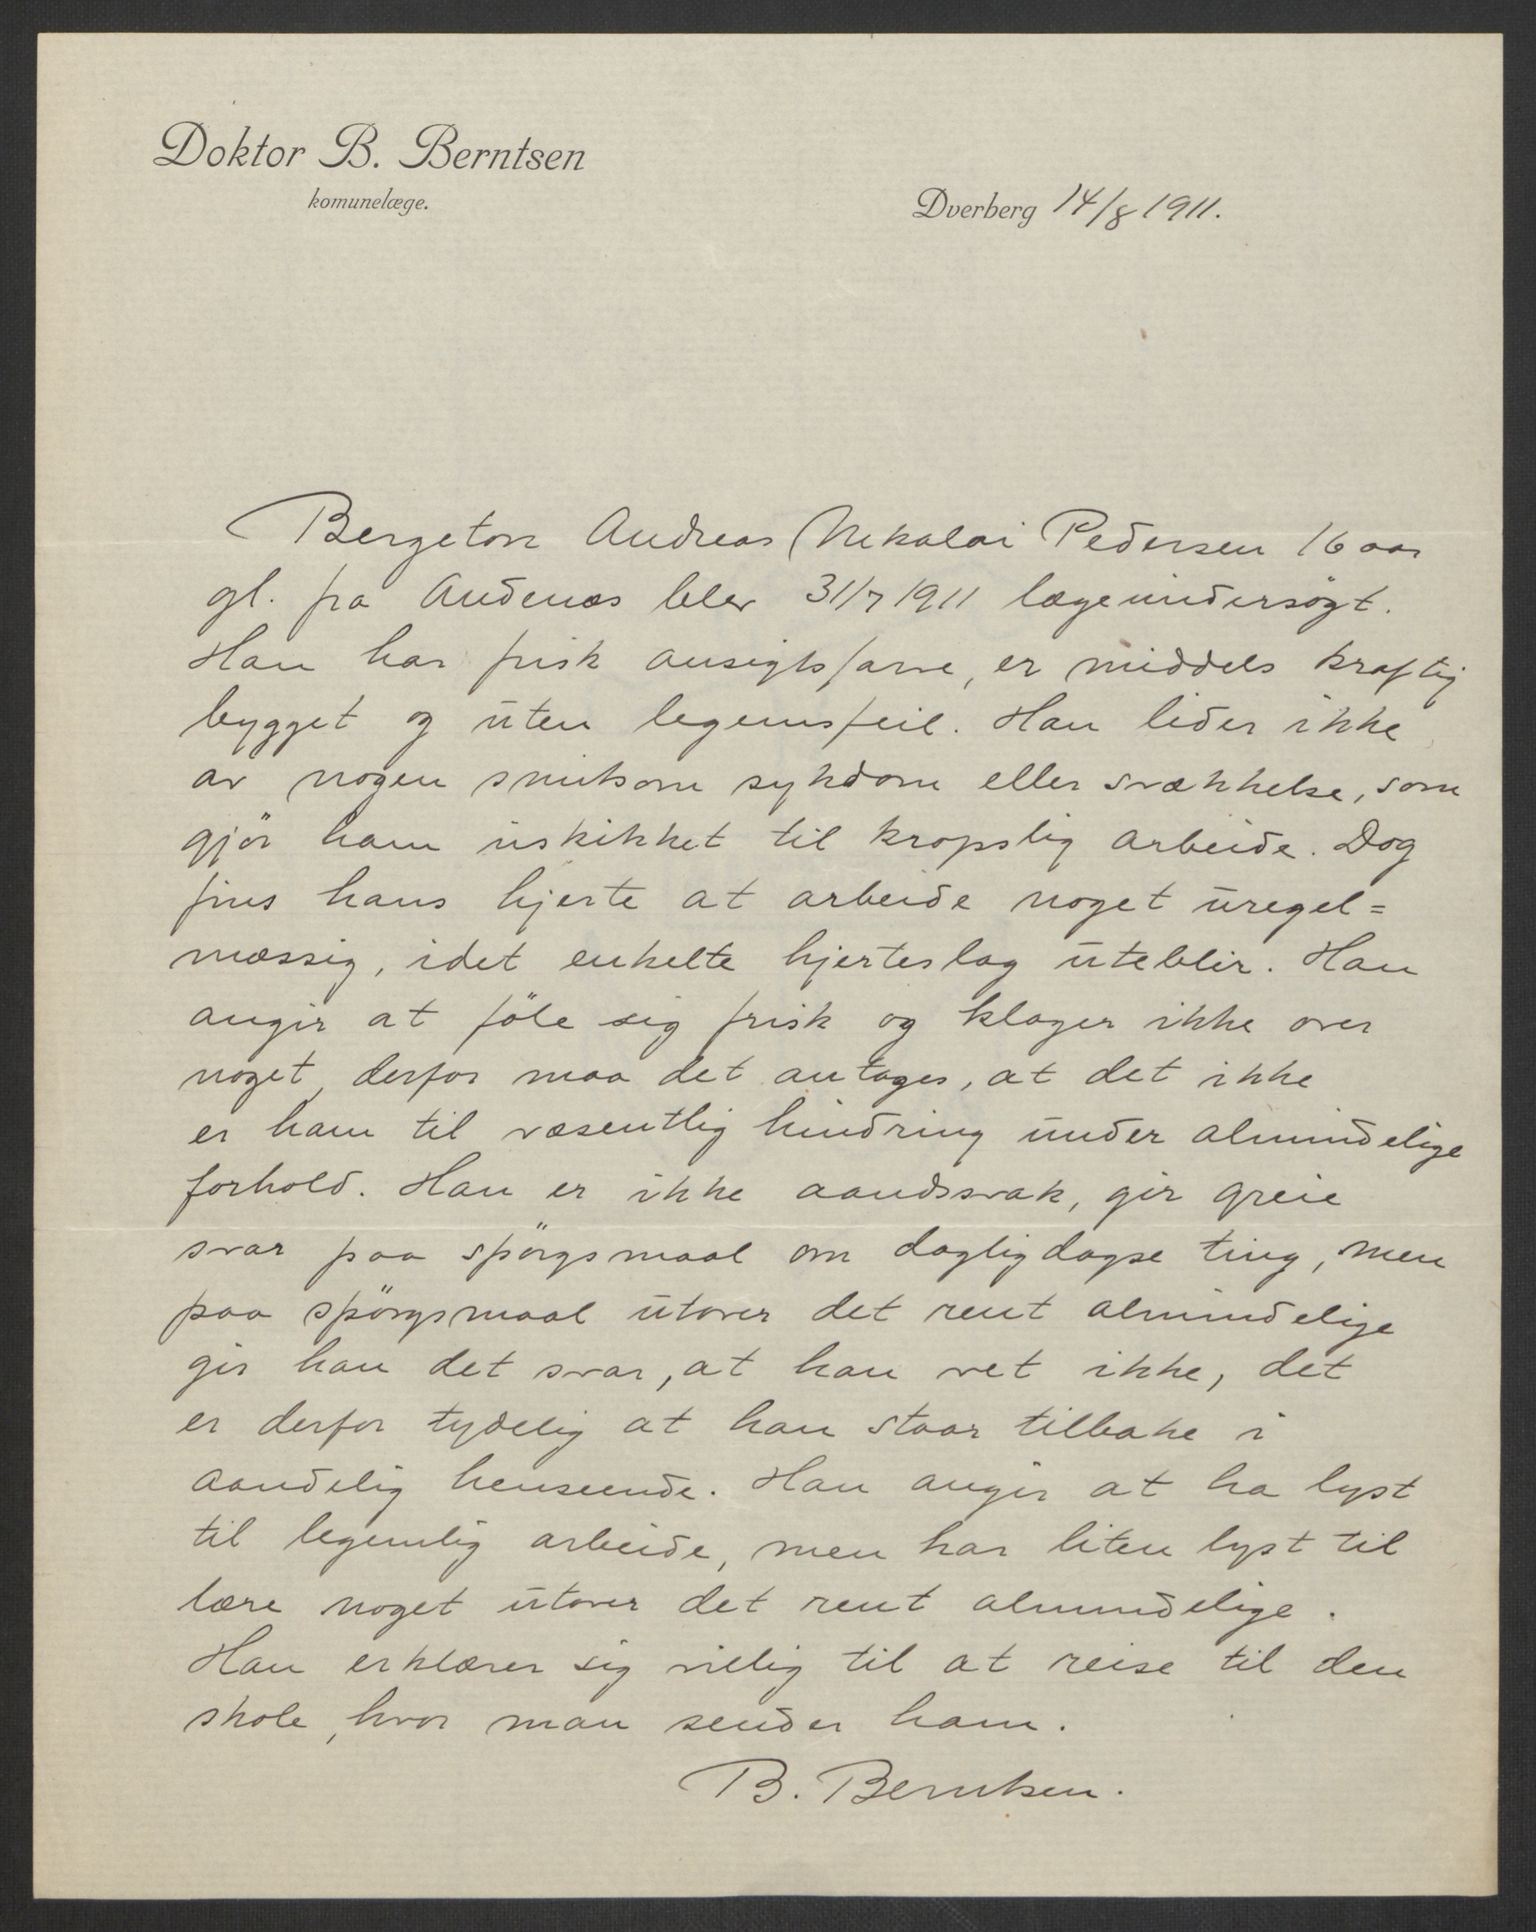 Doktor B. Berntsen
komunelæge.
Dverberg 14/8 1911.
Bergeton Andreas Nikolai Pedersen 16 aar
gl. fra Andenæs blev 31/7 1911 lægeundersøgt.
Han har frisk ansigtsfarve, er middels kraftig
bygget og uten legemsfeil. Han lider ikke
av nogen smitsom sykdom eller svækkelse, som
gjör ham uskikket til kropslig arbeide. Dog
fins hans hjerte at arbeide noget uregel=
mæssig, idet enkelte hjerteslag uteblir. Han
angir at föle sig frisk og klager ikke over
noget, derfor maa det antages, at det ikke
er ham til væsentlig hindring under almindelige
forhold. Han er ikke aandssvak, gir greie
svar paa spörgsmaal om dagligdagse ting, men
paa spörgsmaal utover det rent almindelige
gir han det svar, at han vet ikke, det
er derfor tydelig at han staar tilbake i
aandelig henseende. Han angir at ha lyst
til legemlig arbeide, men har liten lyst til
lære noget utover det rent almindelige.
Han erklærer sig villig til at reise til den
skole, hvor man sender ham.
B. Berntsen.